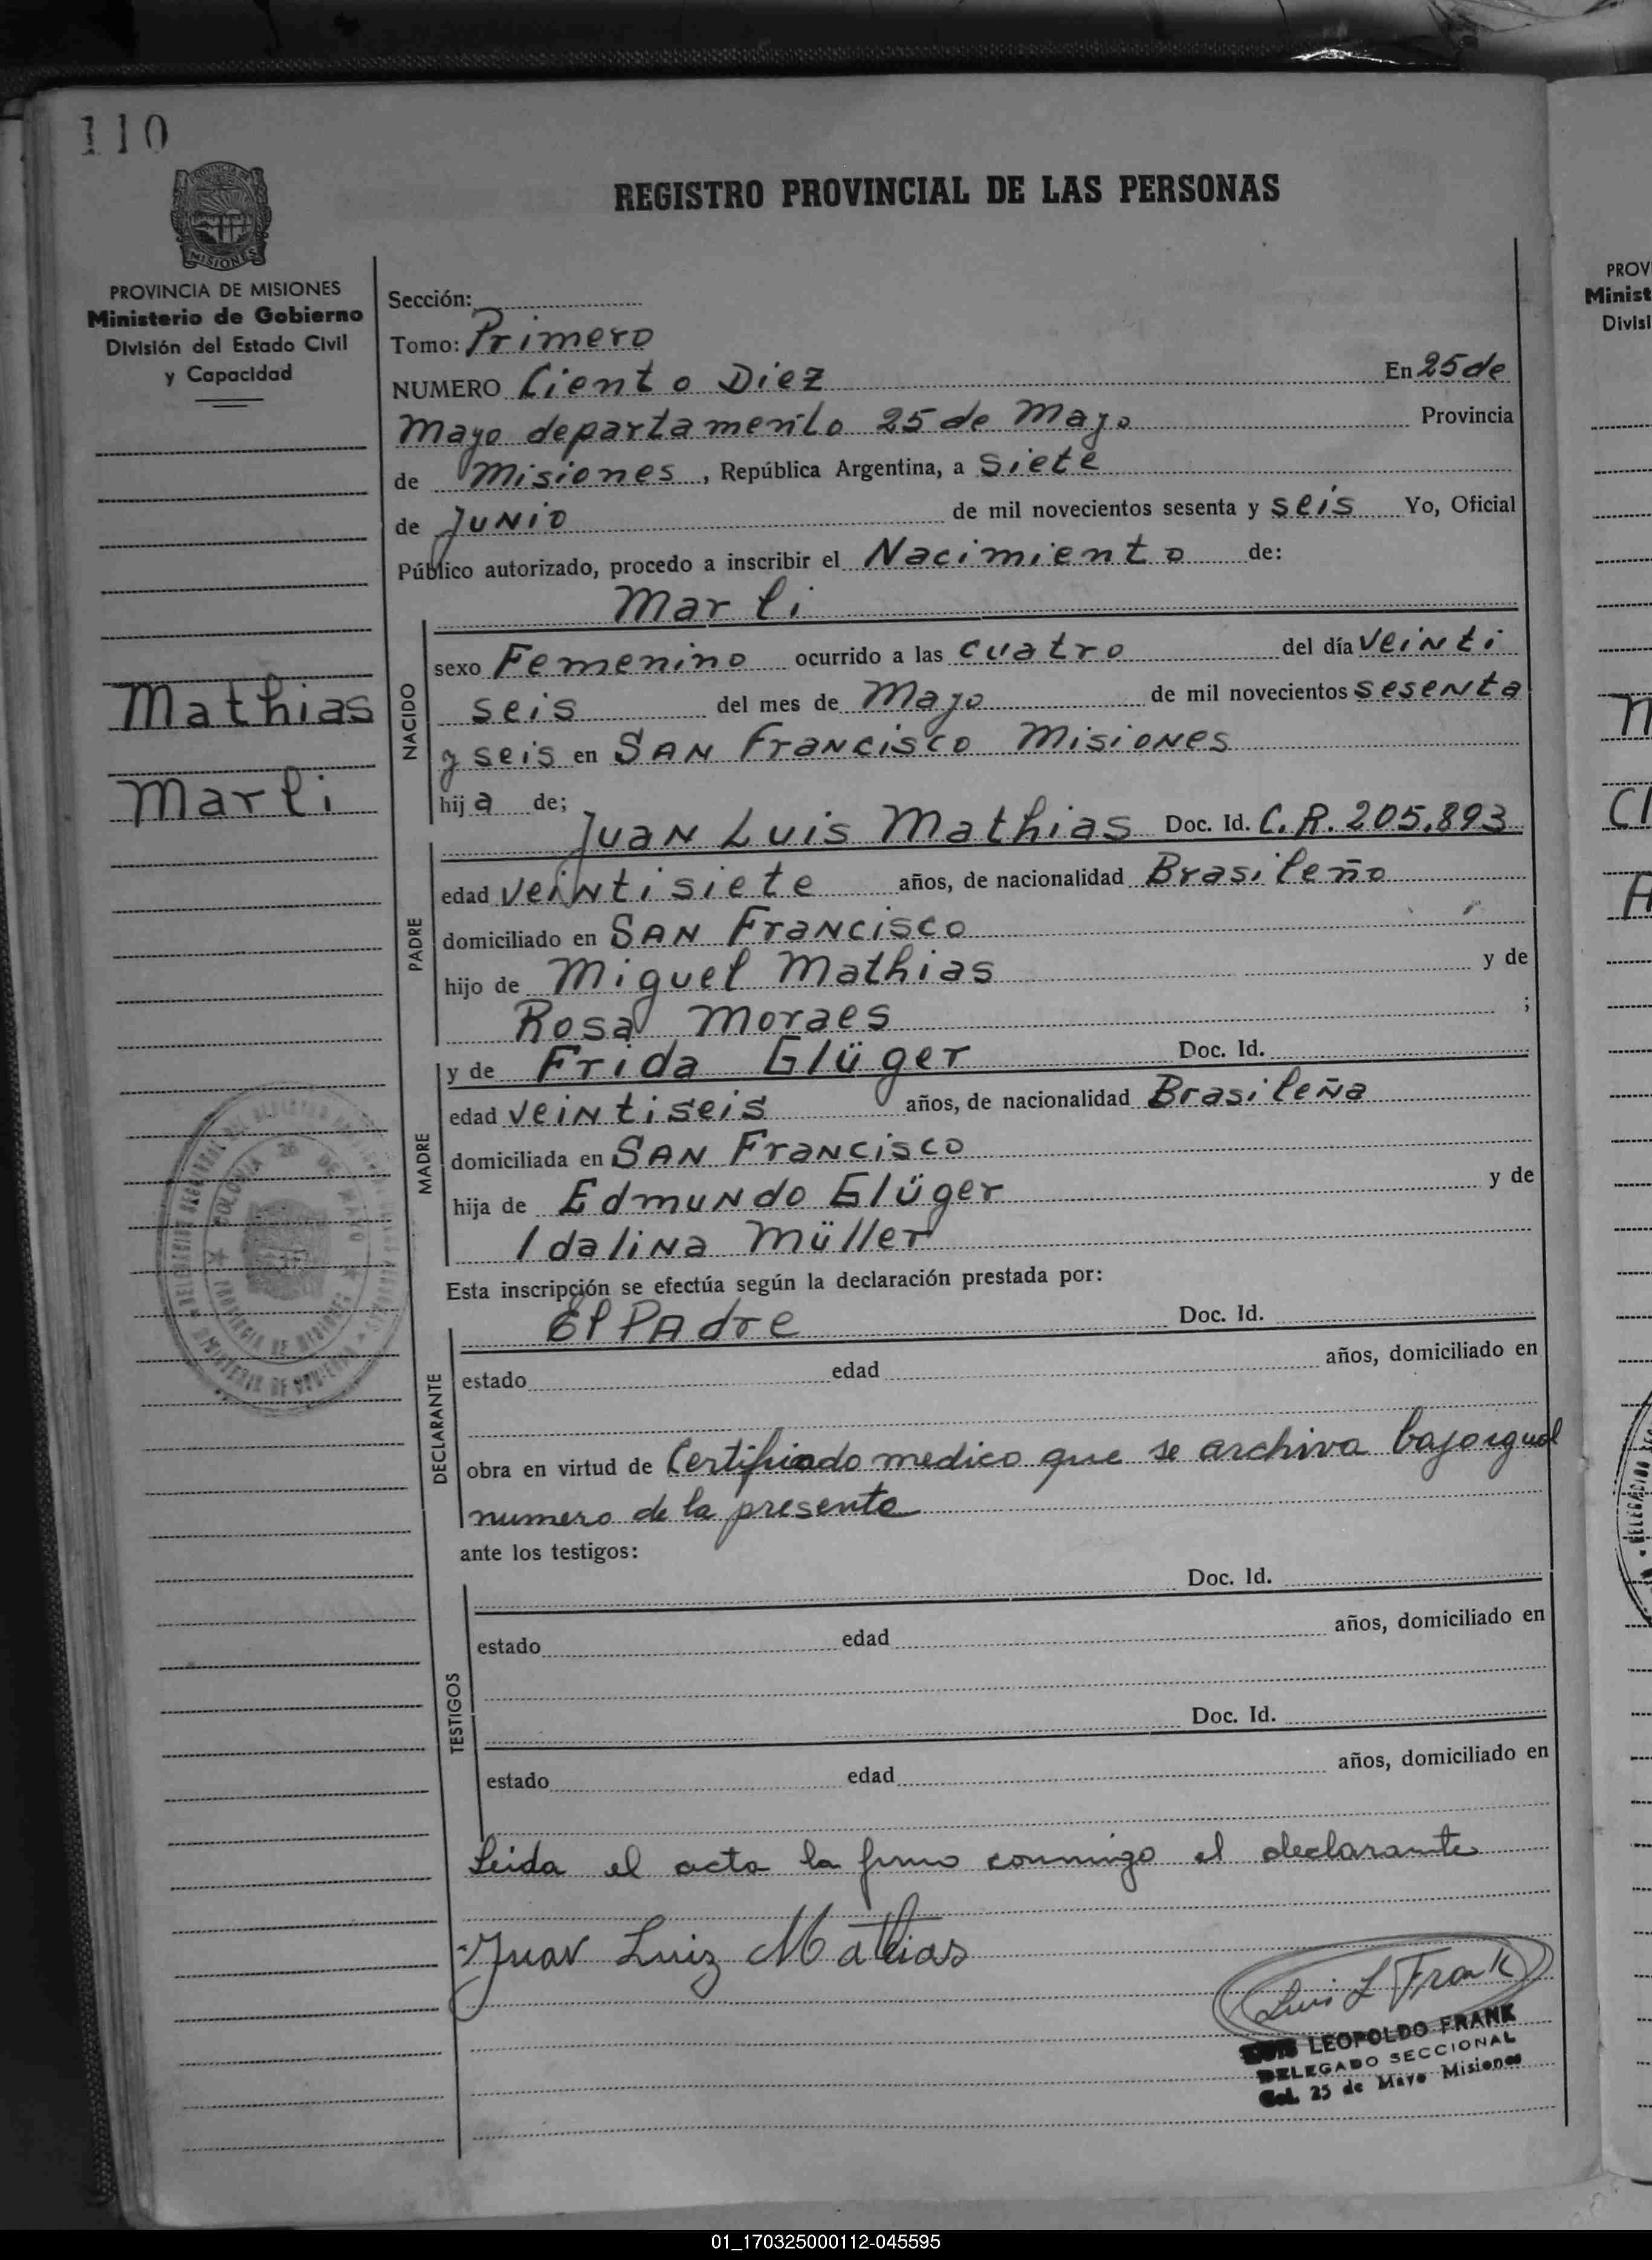 110
MISIONES
PROVINCIA DE MISIONES
Ministerio de Gobierno
División del Estado Civil
y Capacidad
Mathias
Marli
REGISTRO PROVINCIAL DE LAS PERSONAS
Sección:
Tomo: Primero
NUMERO Ciento Diez En 25 de
Mayo departamento 25 de Mayo Provincia
de Misiones, República Argentina, a siete
de Junio de mil novecientos sesenta y seis Yo, Oficial
Público autorizado, procedo a inscribir el Nacimiento de:
Marli
NACIDO
sexo Femenino ocurrido a las cuatro del día veinti
seis del mes de Mayo de mil novecientos sesenta
y seis en San Francisco Misiones
hija de;
PADRE
Juan Luis Mathias Doc. Id. C.R. 205.893
edad veintisiete años, de nacionalidad Brasileño
domiciliado en San Francisco
hijo de Miguel Mathias y de
Rosa Moraes ;
MADRE
y de Frida Glüger Doc. Id.
edad veintiseis años, de nacionalidad Brasileña
domiciliada en San Francisco
hija de Edmundo Glüger y de
Idalina Müller
Esta inscripción se efectúa según la declaración prestada por:
DECLARANTE
El Padre Doc. Id.
estado edad años, domiciliado en
obra en virtud de Certificado medico que se archiva bajo igual
numero de la presente
ante los testigos:
TESTIGOS
Doc. Id.
estado edad años, domiciliado en
Doc. Id.
estado edad años, domiciliado en
Leida el acta la firmo conmigo el declarante
Juan Luiz Mathias
Luis L Frank
LUIS LEOPOLDO FRANK
DELEGADO SECCIONAL
Col. 25 de Mayo Misiones
PROV
Minist
Divisi
01_170325000112-045595